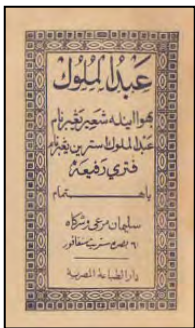 عبدالملوك
بهوا اينله شعير يغبرنام
عبدالملوك استرين يغبرنام
فتري رفيعة
باهتمام
سليمان مرعي وشركاه
بصره ستريت سنغافور
دار الطباعة المصرية